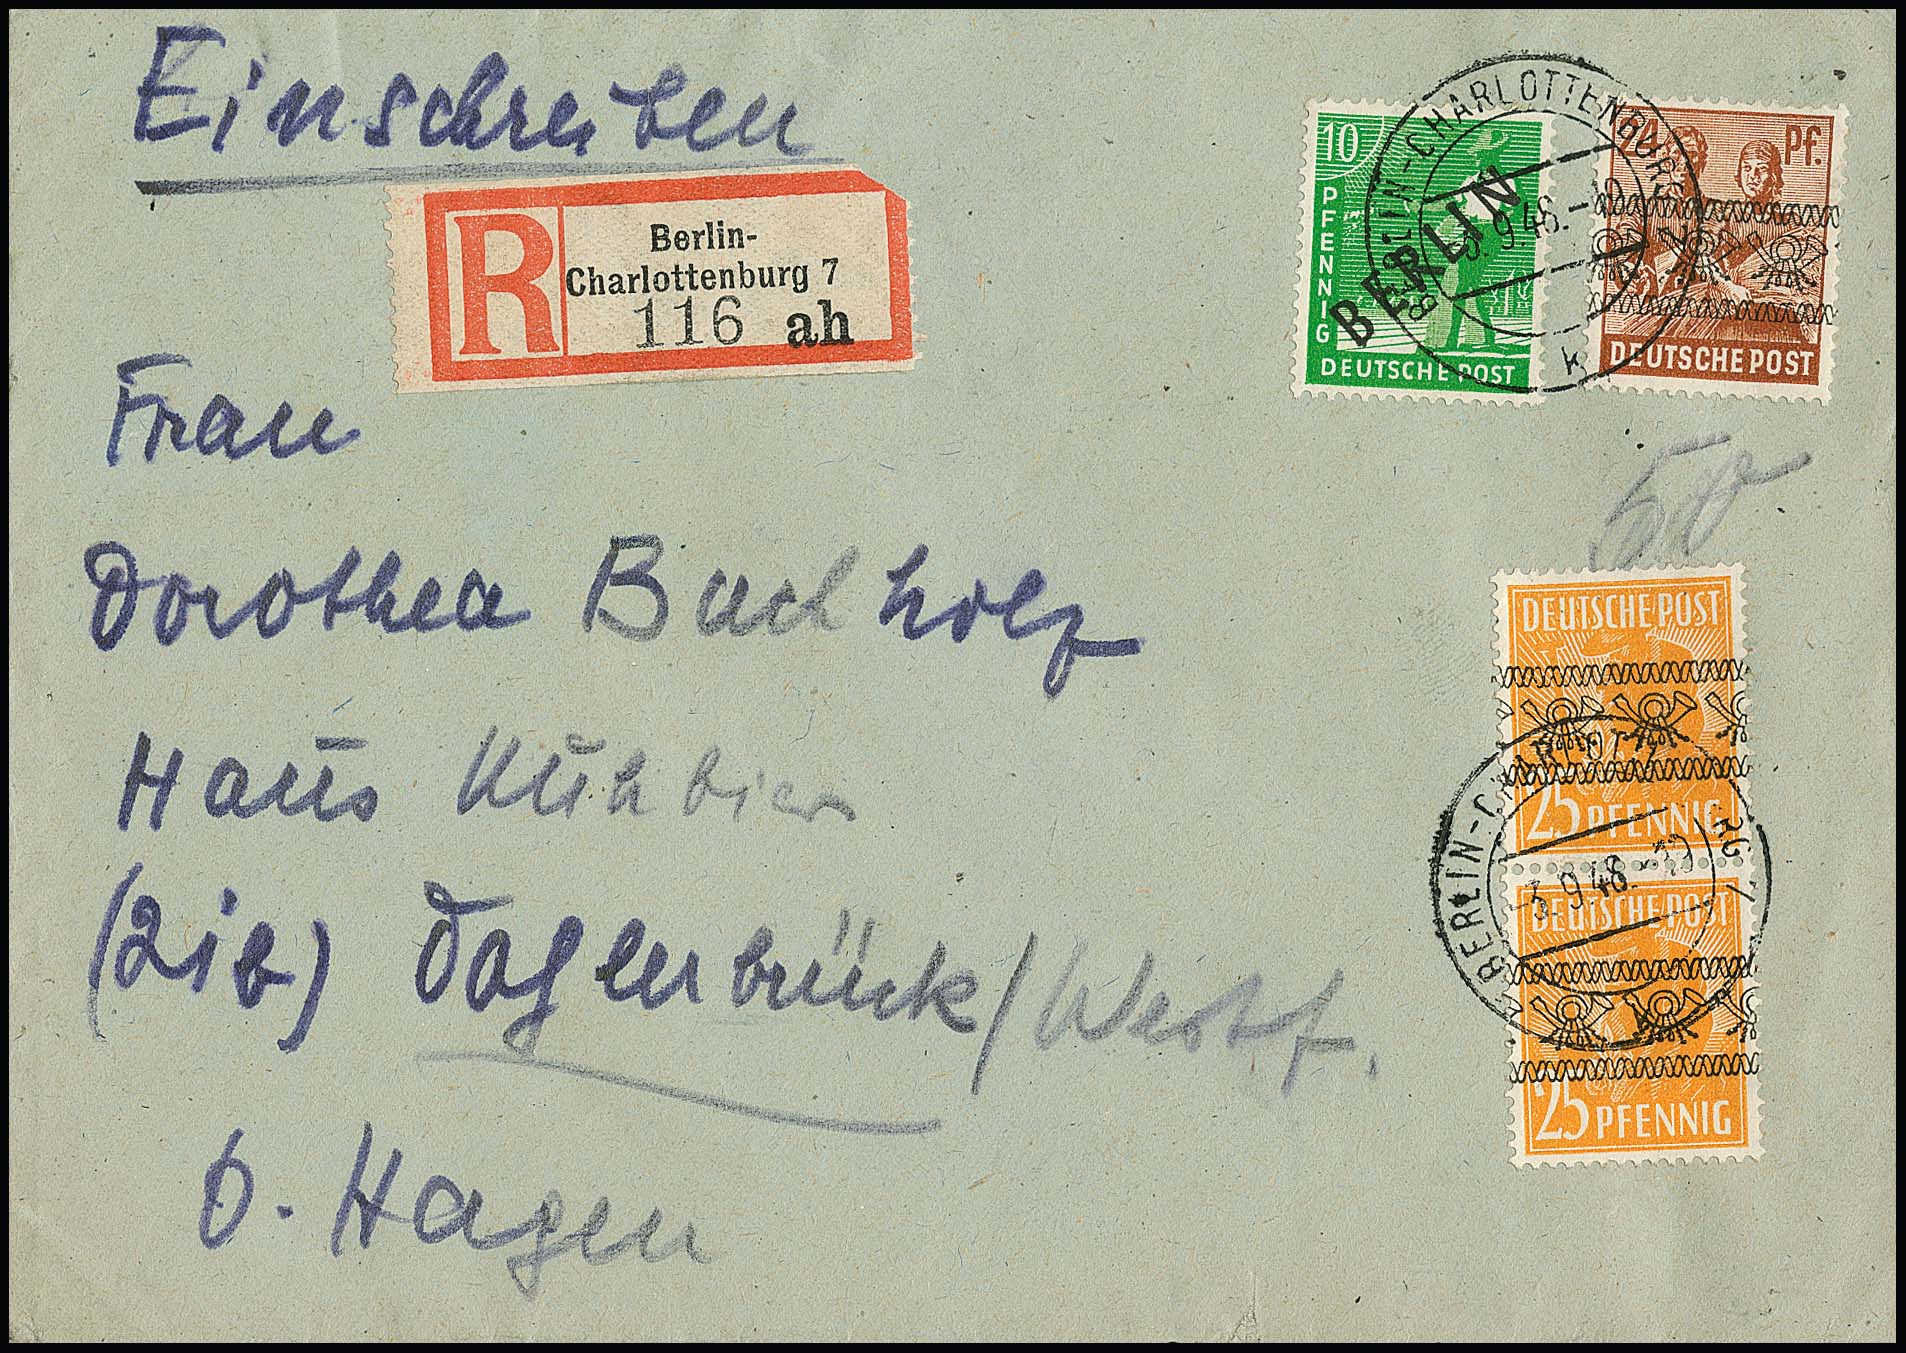 Einschreiben
R
Berlin-
Charlottenburg 7
116 ah
10
PFENNIG
BERLIN
DEUTSCHE POST
24 Pf.
DEUTSCHE POST
BERLIN-CHARLOTTENBURG
9.48.
k
Frau
50
Dorothea Buchholz
DEUTSCHE POST
25 PFENNIG
Haus Kuhbier
BERLIN-CHARLOTT
-3.9.48.
(21b) Dagenbrück/Westf.
DEUTSCHE POST
25 PFENNIG
b. Hagen